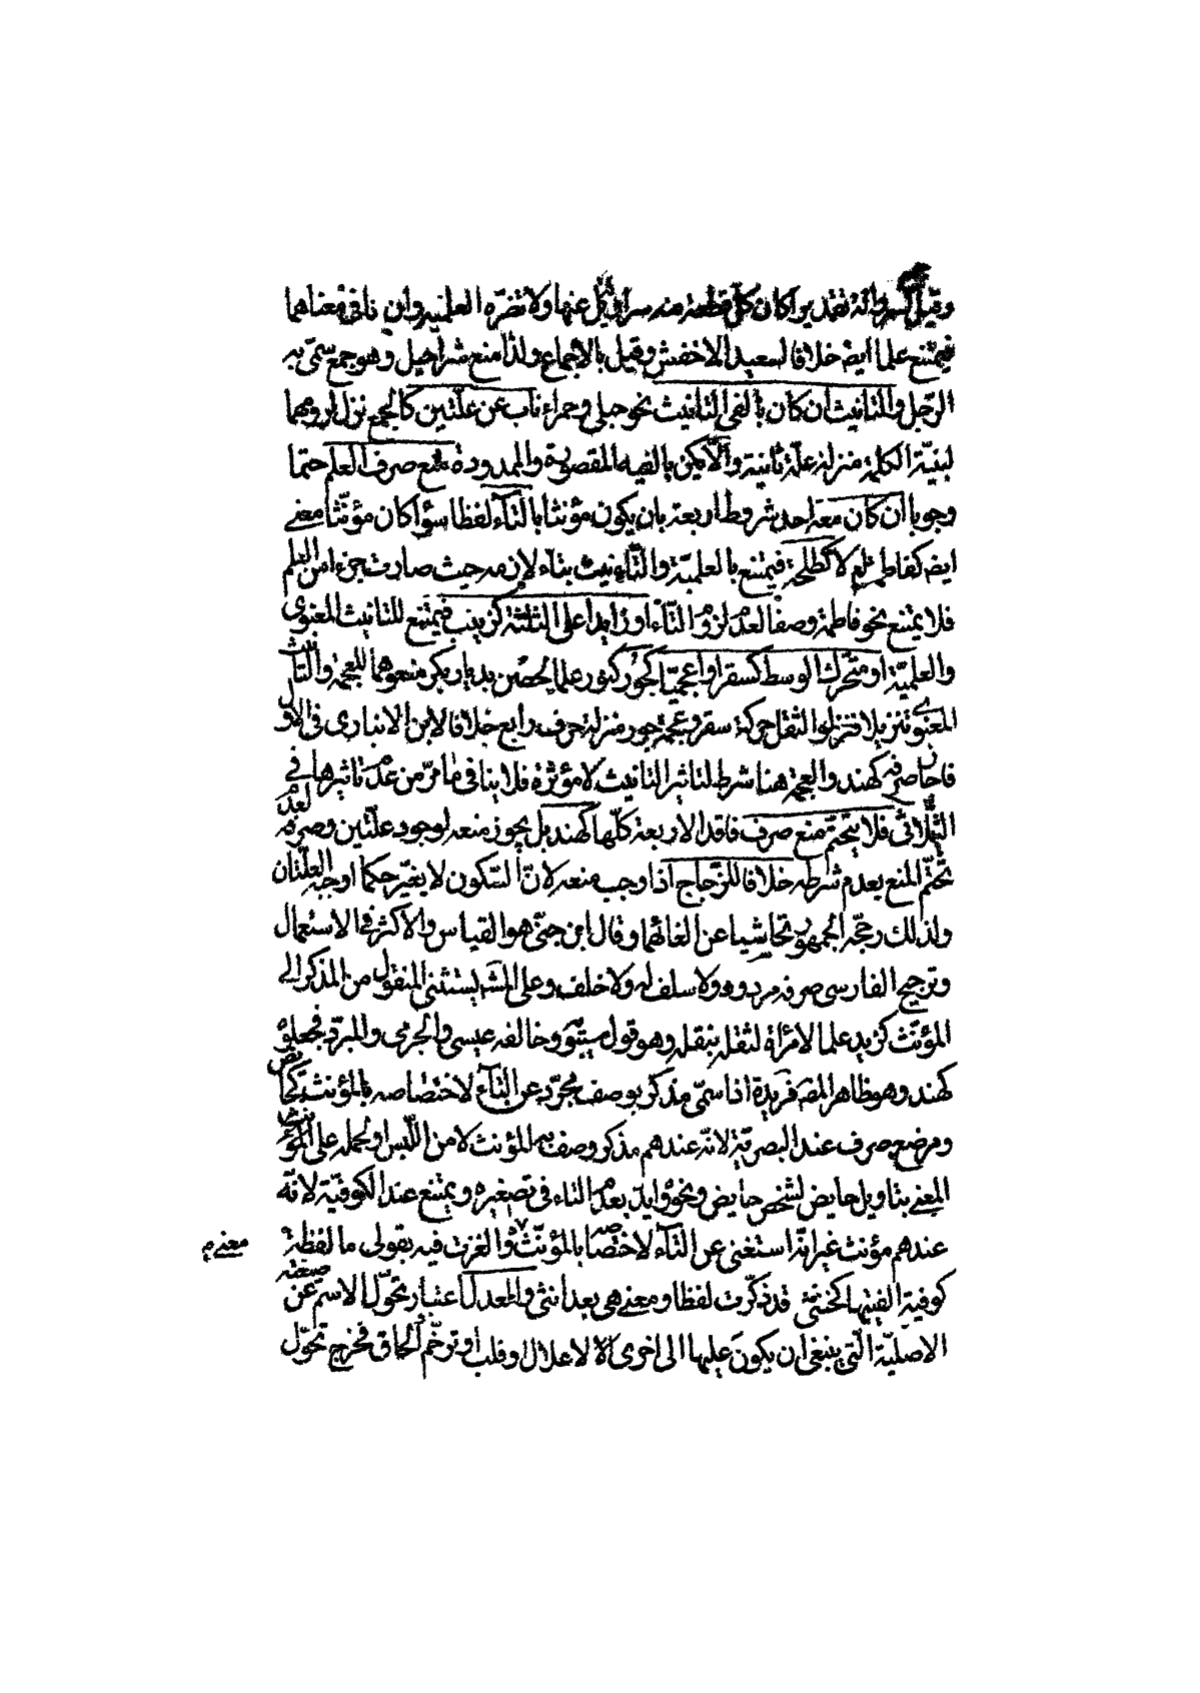 وقيل سروالة تقديرا كان كل قطعة منه سراويل عنها ولا تضره العلمية وان نافى معناهما
فيمتنع علما ايضا خلافا لسعيد الاخفش وقيل بالاجماع ولذا منع شراحيل وهو جمع سمّى به
الرّجل والتانيث ان كان بالفى التانيث نحو حبلى وحمراء ناب عن علّتين كالجمع نزل لزومهما
لبنيّة الكلمة منزلة علّة ثانية والّا يكن بالفيه المقصورة والممدودة منع صرف العلم حتما
وجوبا ان كان معه احد شروط اربعة بان يكون مؤنثا بالتآء لفظا سوآ كان مؤنّثا معنى
ايضا كفاطمة ام لا كطلحة فيمتنع بالعلميّة والتّانيث بتاء لازمه حيث صارت جزءا من العلم
فلا يمتنع نحو فاطمة وصفا لعدم لزوم التّاء او زايدا على الثلثة كزينب فيمتنع للتانيث المعنوى
والعلميّة او متحرّك الوسط كسقر او اعجميّا كجور كنور علما لحصن بديار بكر منعوهما للعجمة والتانيث
المعنوى تنزيلا فنزلوا الثقل حركة سقر وعجمة جور منزلة حرف رابع خلافا لابن الانبارى فى الاول
فاجاز صرفه كهند والعجمة هنا شرط لتاثير التانيث لا مؤثرة فلا ينافى ما مرّ من عدم تاثيرها فى
الثّلاثى فلا يتحتّم منع صرف فاقد الاربعة كلّها كهند بل يجوز منعه لوجود علّتين وصرفه لعدم
تحتّم المنع بعدم شرطه خلافا للزّجاج اذ اوجب منعه لانّ السّكون لا يغيّر حكما اوجبه العلّتان
ولذلك رجّحه الجمهور تحاشيا عن الغائهما وقال ابن جنّى هو القياس والاكثر فى الاستعمال
وترجيح الفارسى صرفه مردود ولا سلف له ولا خلف وعلى المشه يستثنى المنقول من المذكر الى
المؤنّث كزيد علما لامرأة لثقله بنقله وهو قول سيبويه وخالفه عيسى والجرمى والمبرّد فجعلوه
كهند وهو ظاهر المص فريدة اذا سمّى مذكر بوصف مجرّد عن التآء لاختصاصه بالمؤنث كحائض
ومرضع صرف عند البصريّة لانّه عندهم مذكر وصف به المؤنث لامن اللّبس او لحمله على المؤنث
المعنى بتاويل حايض لشخص حايض ونحوه وايّد بعدم التاء فى تصغيره ويمتنع عند الكوفيّة لانّه
عندهم مؤنث غير انّه استغنى عن التآء لاختصاصه بالمؤنّث والغزت فيه بقولى ما لفظة معنى م
كوفية الفيتها كخنثى قد ذكّرت لفظا ومعنى هى بعد انثى والعدل اعتبار تحوّل الاسم عن صيغته
الاصليّة الّتى ينبغى ان يكون عليها الى اخرى لا لاعلال او قلب او ترخّم الحاق فخرج تحوّل